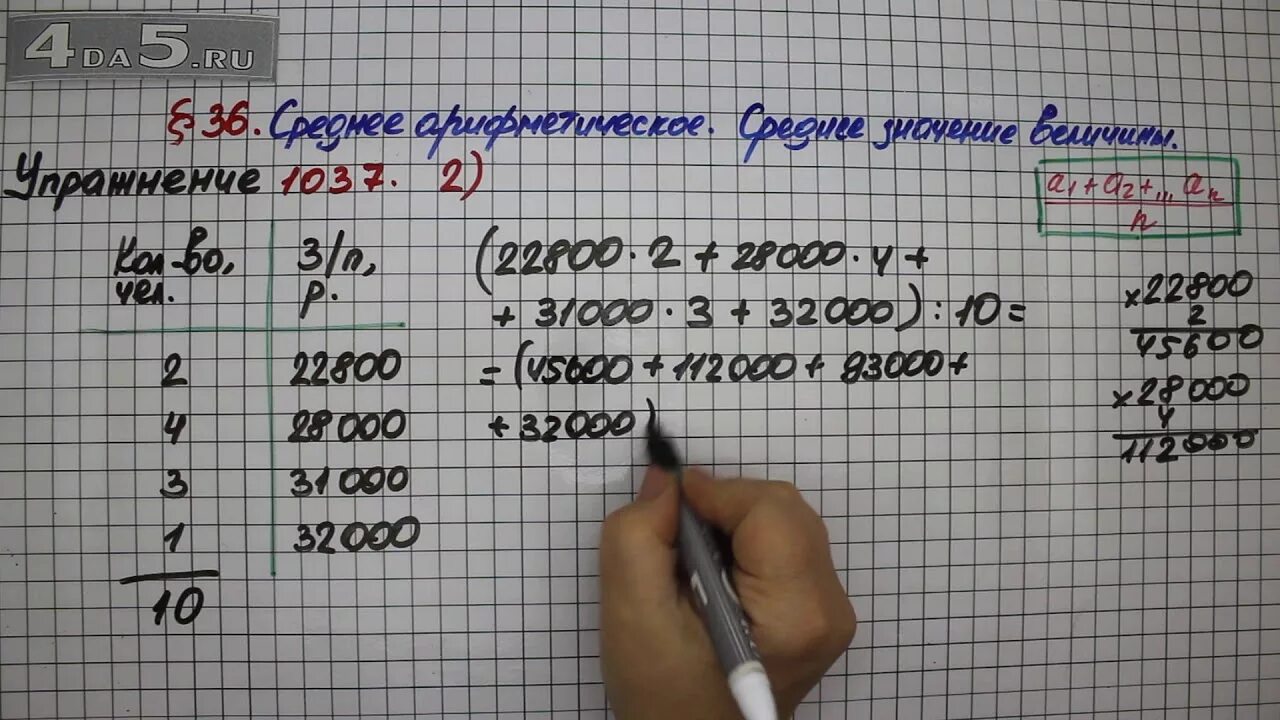 4DA5.RU
§ 36. Среднее арифметическое. Среднее значение величины.
Упражнение 1037. 2)
a₁+a₂+...aₙ
n
Кол-во, чел.
З/п, р.
2 22800
4 28000
3 31000
1 32000
10
(22800 · 2 + 28000 · 4 +
+ 31000 · 3 + 32000) : 10 =
= (45600 + 112000 + 93000 +
+ 32000)
×22800
2
45600
×28000
4
112000